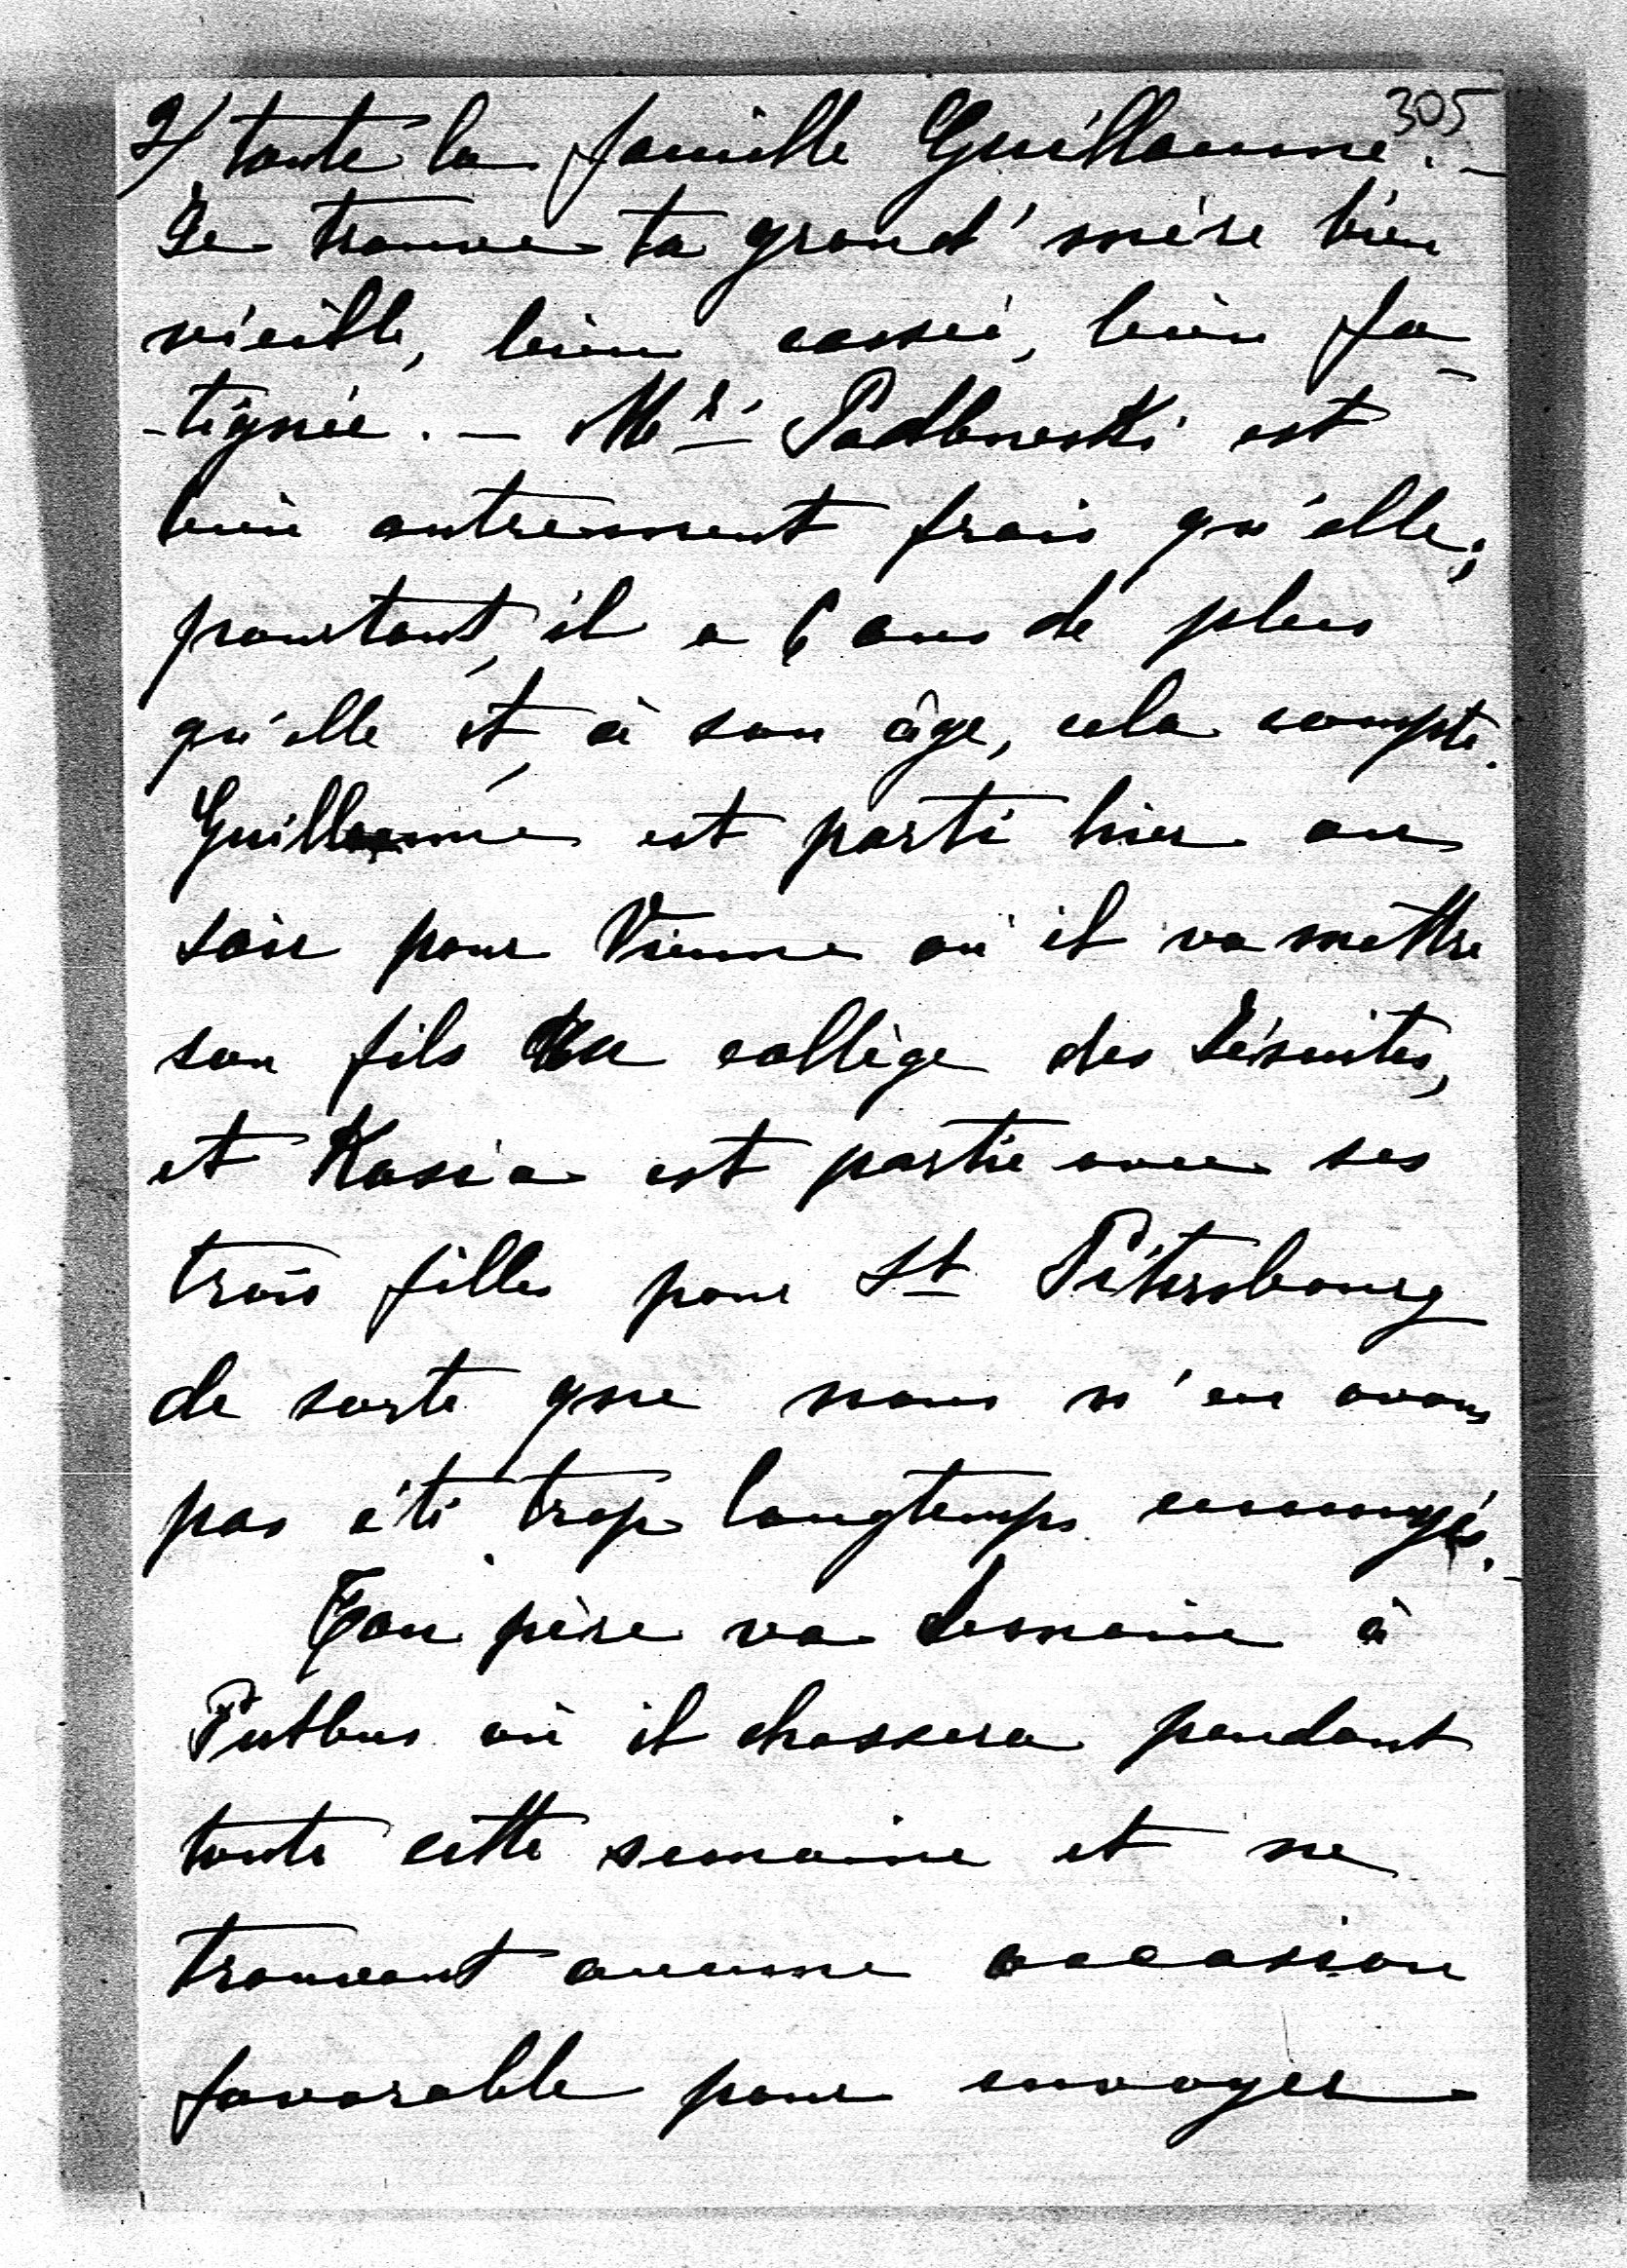 305
2/ toute la famille Guillaume. –
Je trouve ta grand' mère bien
vieille, bien cassée, bien fa-
-tiguée. – Mr. Podbneski est
bien autrement frais qu'elle;
pourtant, il a 6 ans de plus
qu'elle et, à son âge, cela compte.
Guillaume est parti hier au
soir pour Vienne où il va mettre
son fils au collège des Jésuites,
et Kasia est partie avec ses
trois filles pour St Pétersbourg
de sorte que nous n'en avons
pas été trop longtemps ennuyés. –
Ton père va demain à
Putbus où il chassera pendant
toute cette semaine et ne
trouvant aucune occasion
favorable pour envoyer